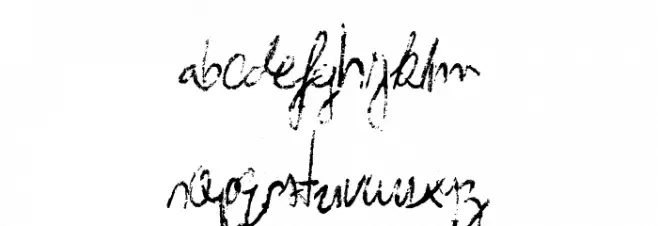 abcdefghijklmn
nopqrstuvwxyz